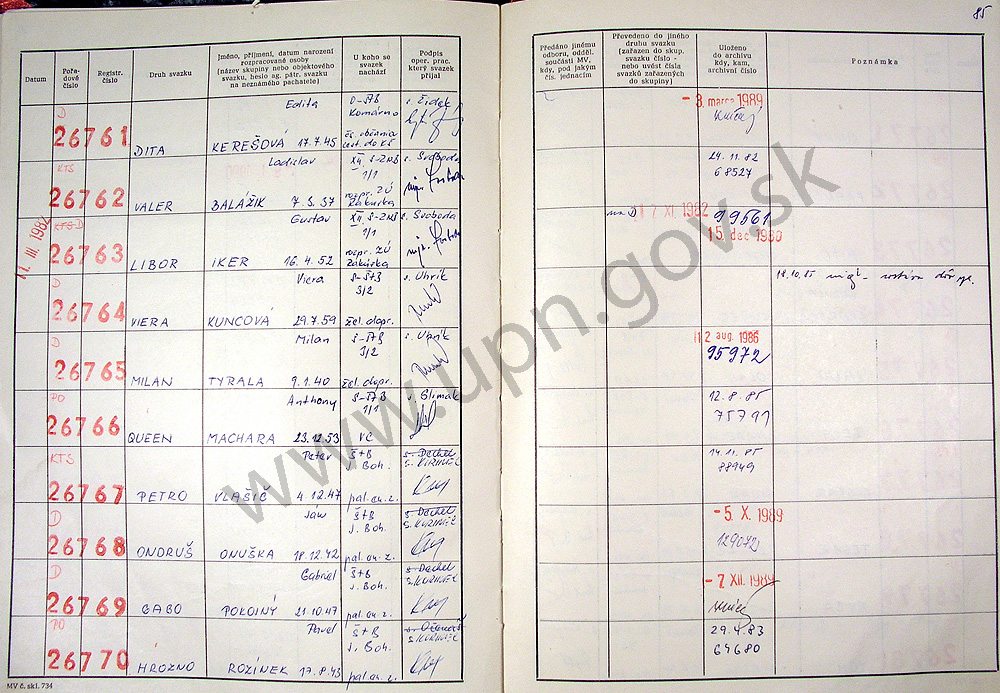 85
Datum
Pořadové číslo
Registr. číslo
Druh svazku
Jméno, příjmení, datum narození rozpracované osoby (název skupiny nebo objektového svazku, heslo ag. pátr. svazku na neznámého pachatele)
U koho se svazek nachází
Podpis oper. prac. který svazek přijal
Předáno jinému odboru, odděl. součásti MV, kdy, pod jakým čís. jednacím
Převedeno do jiného druhu svazku (zařazen do skup. svazku číslo - nebo uvést čísla svazků zařazených do skupiny)
Uloženo do archivu kdy, kam, archivní číslo
Poznámka
D
Edita
Š-ŠtB
Komárno
s. Židek
26761 DITA KEREŠOVÁ 17.7.45
- 3. marca 1989
KTS
Ladislav
XII S-ZNB
1/1
s. Svoboda
26762 VALER BALÁŽIK 7.3.37
rozpr. ZÚ
24.11.82
68527
11. III. 1982
KTS D
Gustav
XII S-ZNB
1/1
s. Svoboda
26763 LIBOR IKER 16.4.52
rozpr. ZÚ
na D
17 XI. 1982
99561
15. dec 1980
D
Viera
S-ŠtB
3/2
s. Uhrik
26764 VIERA KUNCOVÁ 29.7.59 žel. dopr.
18.10.85
D
Milan
S-ŠtB
3/2
26765 MILAN TYRALA 9.1.40 žel. dopr.
12 aug. 1986
95972
PO
Anthony
S-ŠTB
1/1
s. Slimák
26766 QUEEN MACHARA 23.12.53 VC
12.8.85
75791
KTS
Peter
Š+B
J. Boh.
26767 PETRO VLAŠIČ 4.12.47 pal. an. z.
14.11.85
88949
D
Jan
Š+B
J. Boh.
26768 ONDRUŠ ONUŠKA 18.12.42 pal. an. z.
- 5. X. 1989
129072
D
Gabriel
Š+B
J. Boh.
26769 GABO POKOJNÝ 21.10.47 pal. an. z.
- 7. XII. 1989
PO
Pavel
Š+B
J. Boh.
26770 HROZNO ROZÍNEK 17.8.43 pal. an. z.
29.4.83
64680
MV č. skl. 734
www.upn.gov.sk